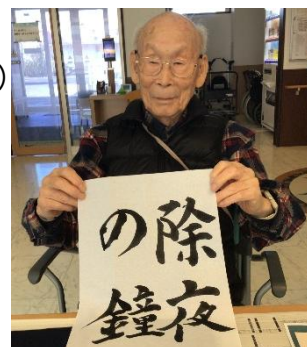 除夜
の鐘